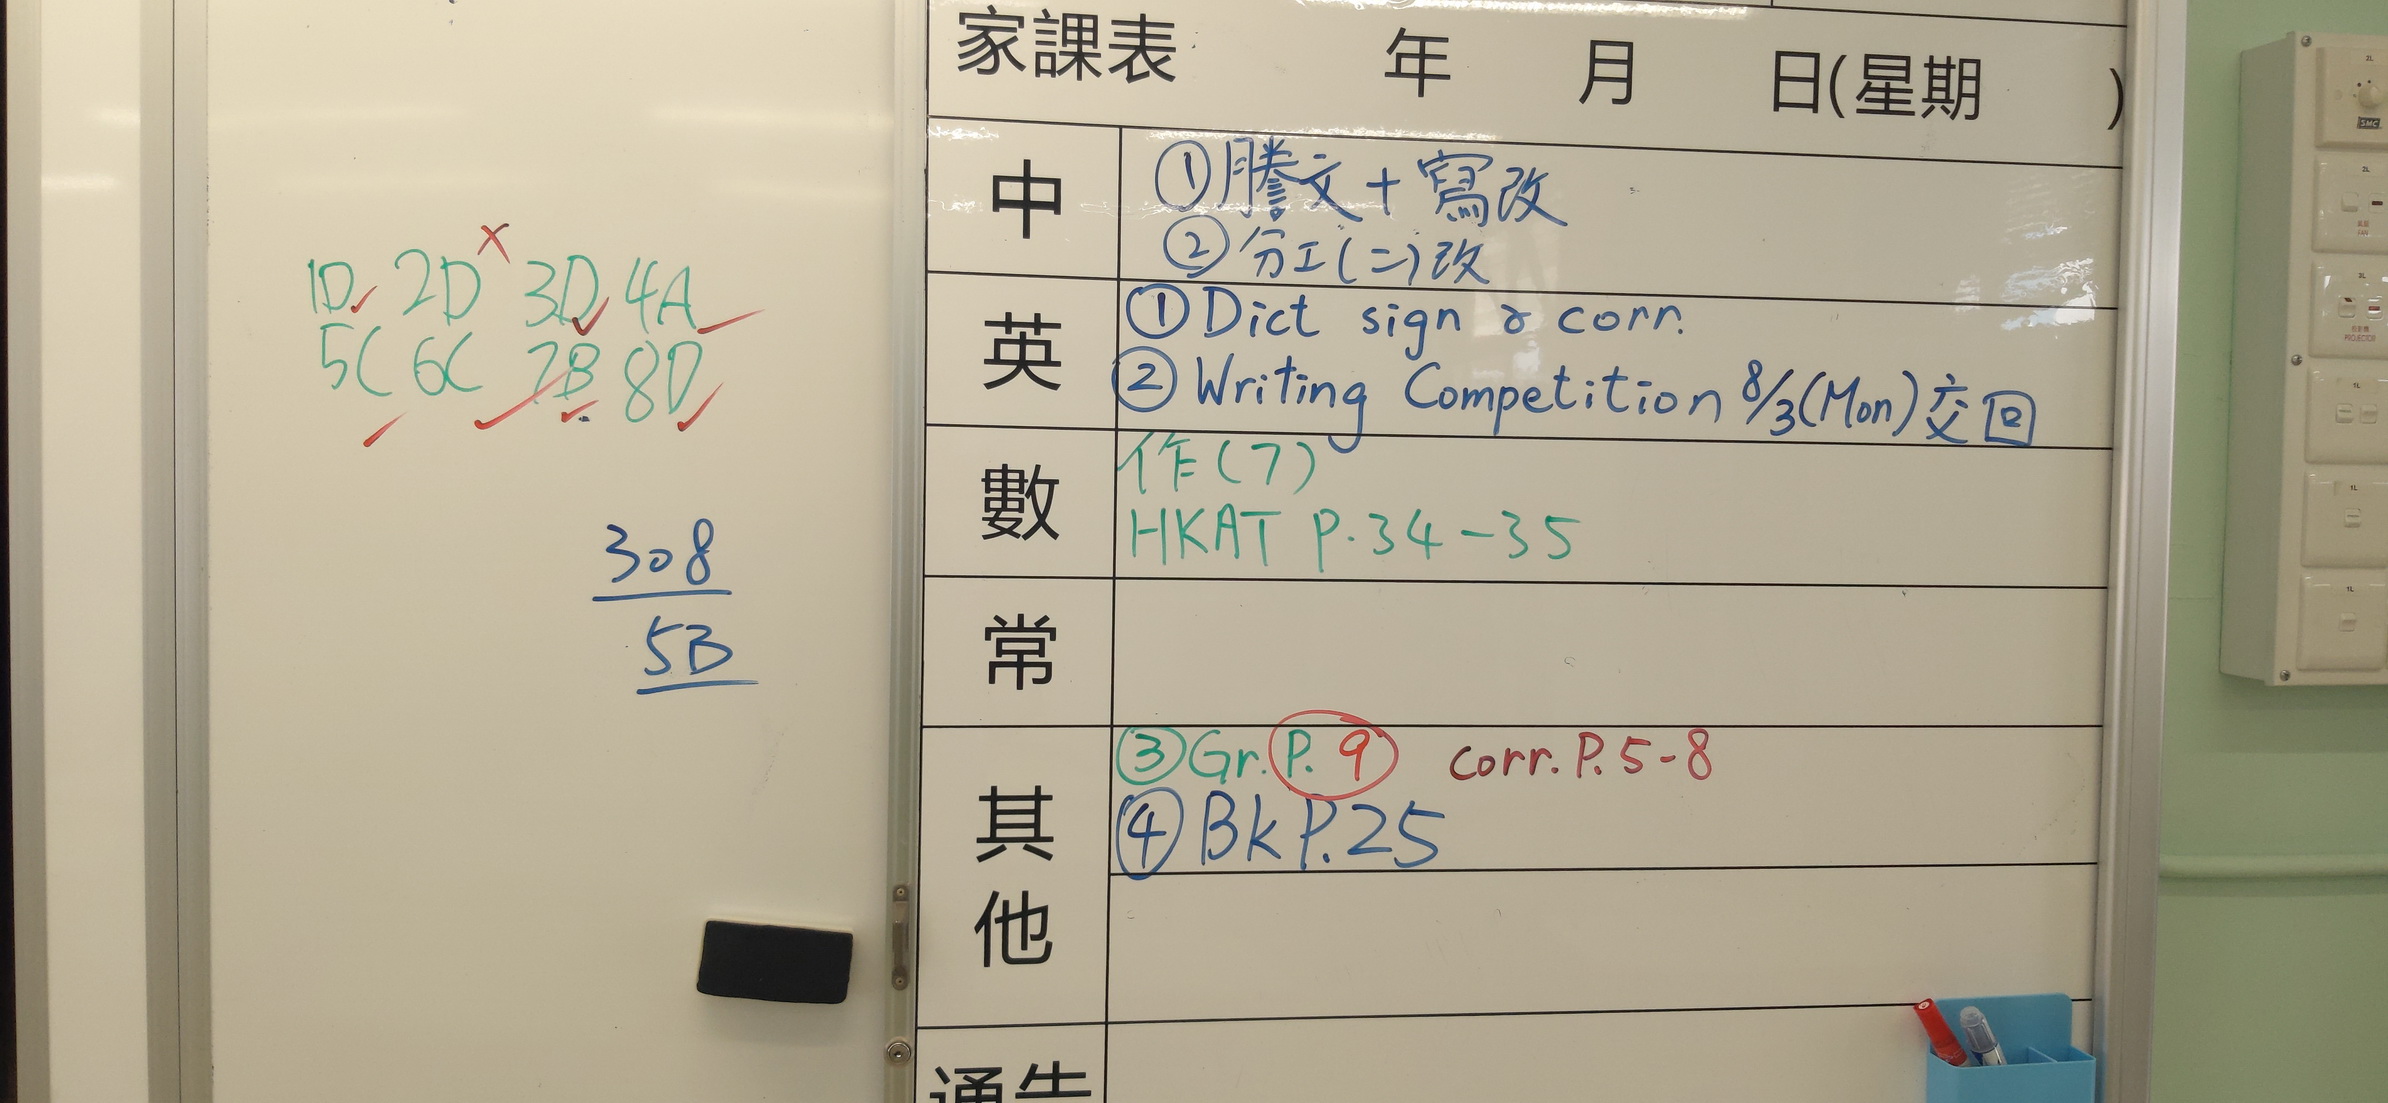 1D 2D 3D 4A
5C 6C 7B 8D
308
5B
家課表 年 月 日(星期 )
中
①謄文+寫改
②分工(二)改
英
①Dict sign & corr.
②Writing Competition 8/3(Mon)交回
數
作(7)
HKAT P.34-35
常
其他
③Gr.P.9 corr.P.5-8
④BkP.25
通告
SMC
FAN
PROJECTOR